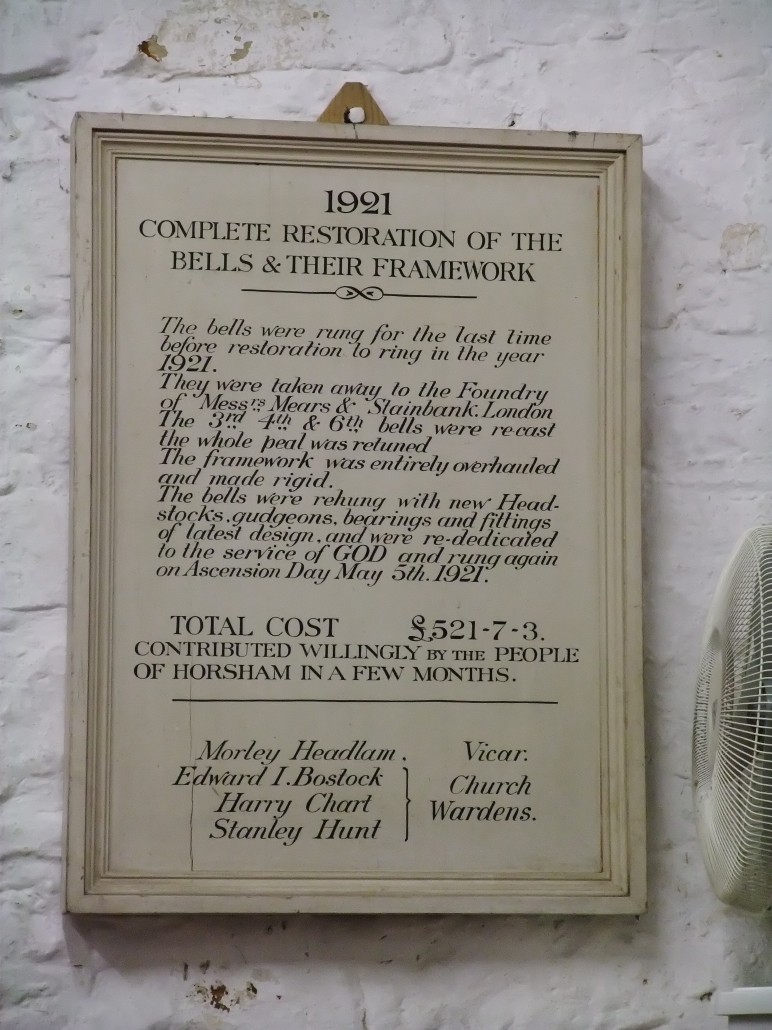 1921
COMPLETE RESTORATION OF THE
BELLS & THEIR FRAMEWORK
The bells were rung for the last time
before restoration to ring in the year
1921.
They were taken away to the Foundry
of Messrs Mears & Stainbank. London
The 3rd 4th & 6th bells were re-cast
the whole peal was retuned
The framework was entirely overhauled
and made rigid.
The bells were rehung with new Head-
stocks, gudgeons, bearings and fittings
of latest design, and were re-dedicated
to the service of GOD and rung again
on Ascension Day May 5th. 1921.
TOTAL COST £521-7-3.
CONTRIBUTED WILLINGLY BY THE PEOPLE
OF HORSHAM IN A FEW MONTHS.
Morley Headlam. Vicar.
Edward I. Bostock
Harry Chart
Stanley Hunt
Church
Wardens.